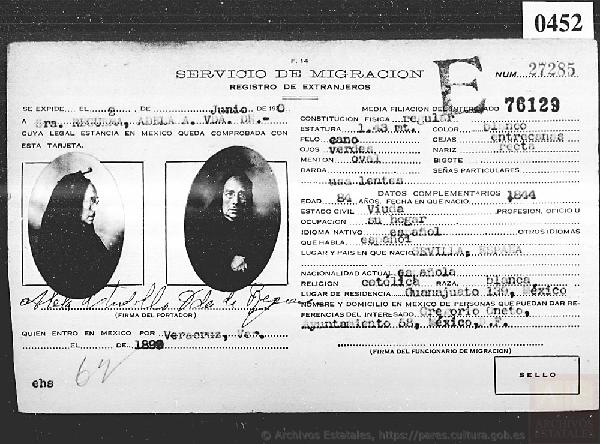 0452
F. 14
SERVICIO DE MIGRACION
REGISTRO DE EXTRANJEROS
E
NUM. 27285
76129
SE EXPIDE EL DE Junio DE 19
A Sra. ADELA A. VDA. DE.-
CUYA LEGAL ESTANCIA EN MEXICO QUEDA COMPROBADA CON
ESTA TARJETA.
MEDIA FILIACION DEL INTERESADO
CONSTITUCION FISICA regular
ESTATURA 1.43 mt. COLOR
PELO cano CEJAS entrecanas
OJOS verdes NARIZ recta
MENTON oval BIGOTE
BARBA SEÑAS PARTICULARES
usa lentes
DATOS COMPLEMENTARIOS
EDAD AÑOS. FECHA EN QUE NACIO 1844
ESTADO CIVIL Viuda PROFESION, OFICIO U
OCUPACION su hogar
IDIOMA NATIVO español OTROS IDIOMAS
QUE HABLA. español
LUGAR Y PAIS EN QUE NACIO SEVILLA, ESPAÑA
NACIONALIDAD ACTUAL española
RELIGION católica RAZA. blanca
LUGAR DE RESIDENCIA Guanajuato México
NOMBRE Y DOMICILIO EN MEXICO DE PERSONAS QUE PUEDAN DAR RE-
FERENCIAS DEL INTERESADO. Gregorio Oneto,
Ayuntamiento México, D.F.
(FIRMA DEL PORTADOR)
QUIEN ENTRO EN MEXICO POR Veracruz, Ver.
EL DE
(FIRMA DEL FUNCIONARIO DE MIGRACION)
SELLO
ehs
© Archivos Estatales, https://pares.cultura.gob.es
ARCHIVOS
ESTATALES